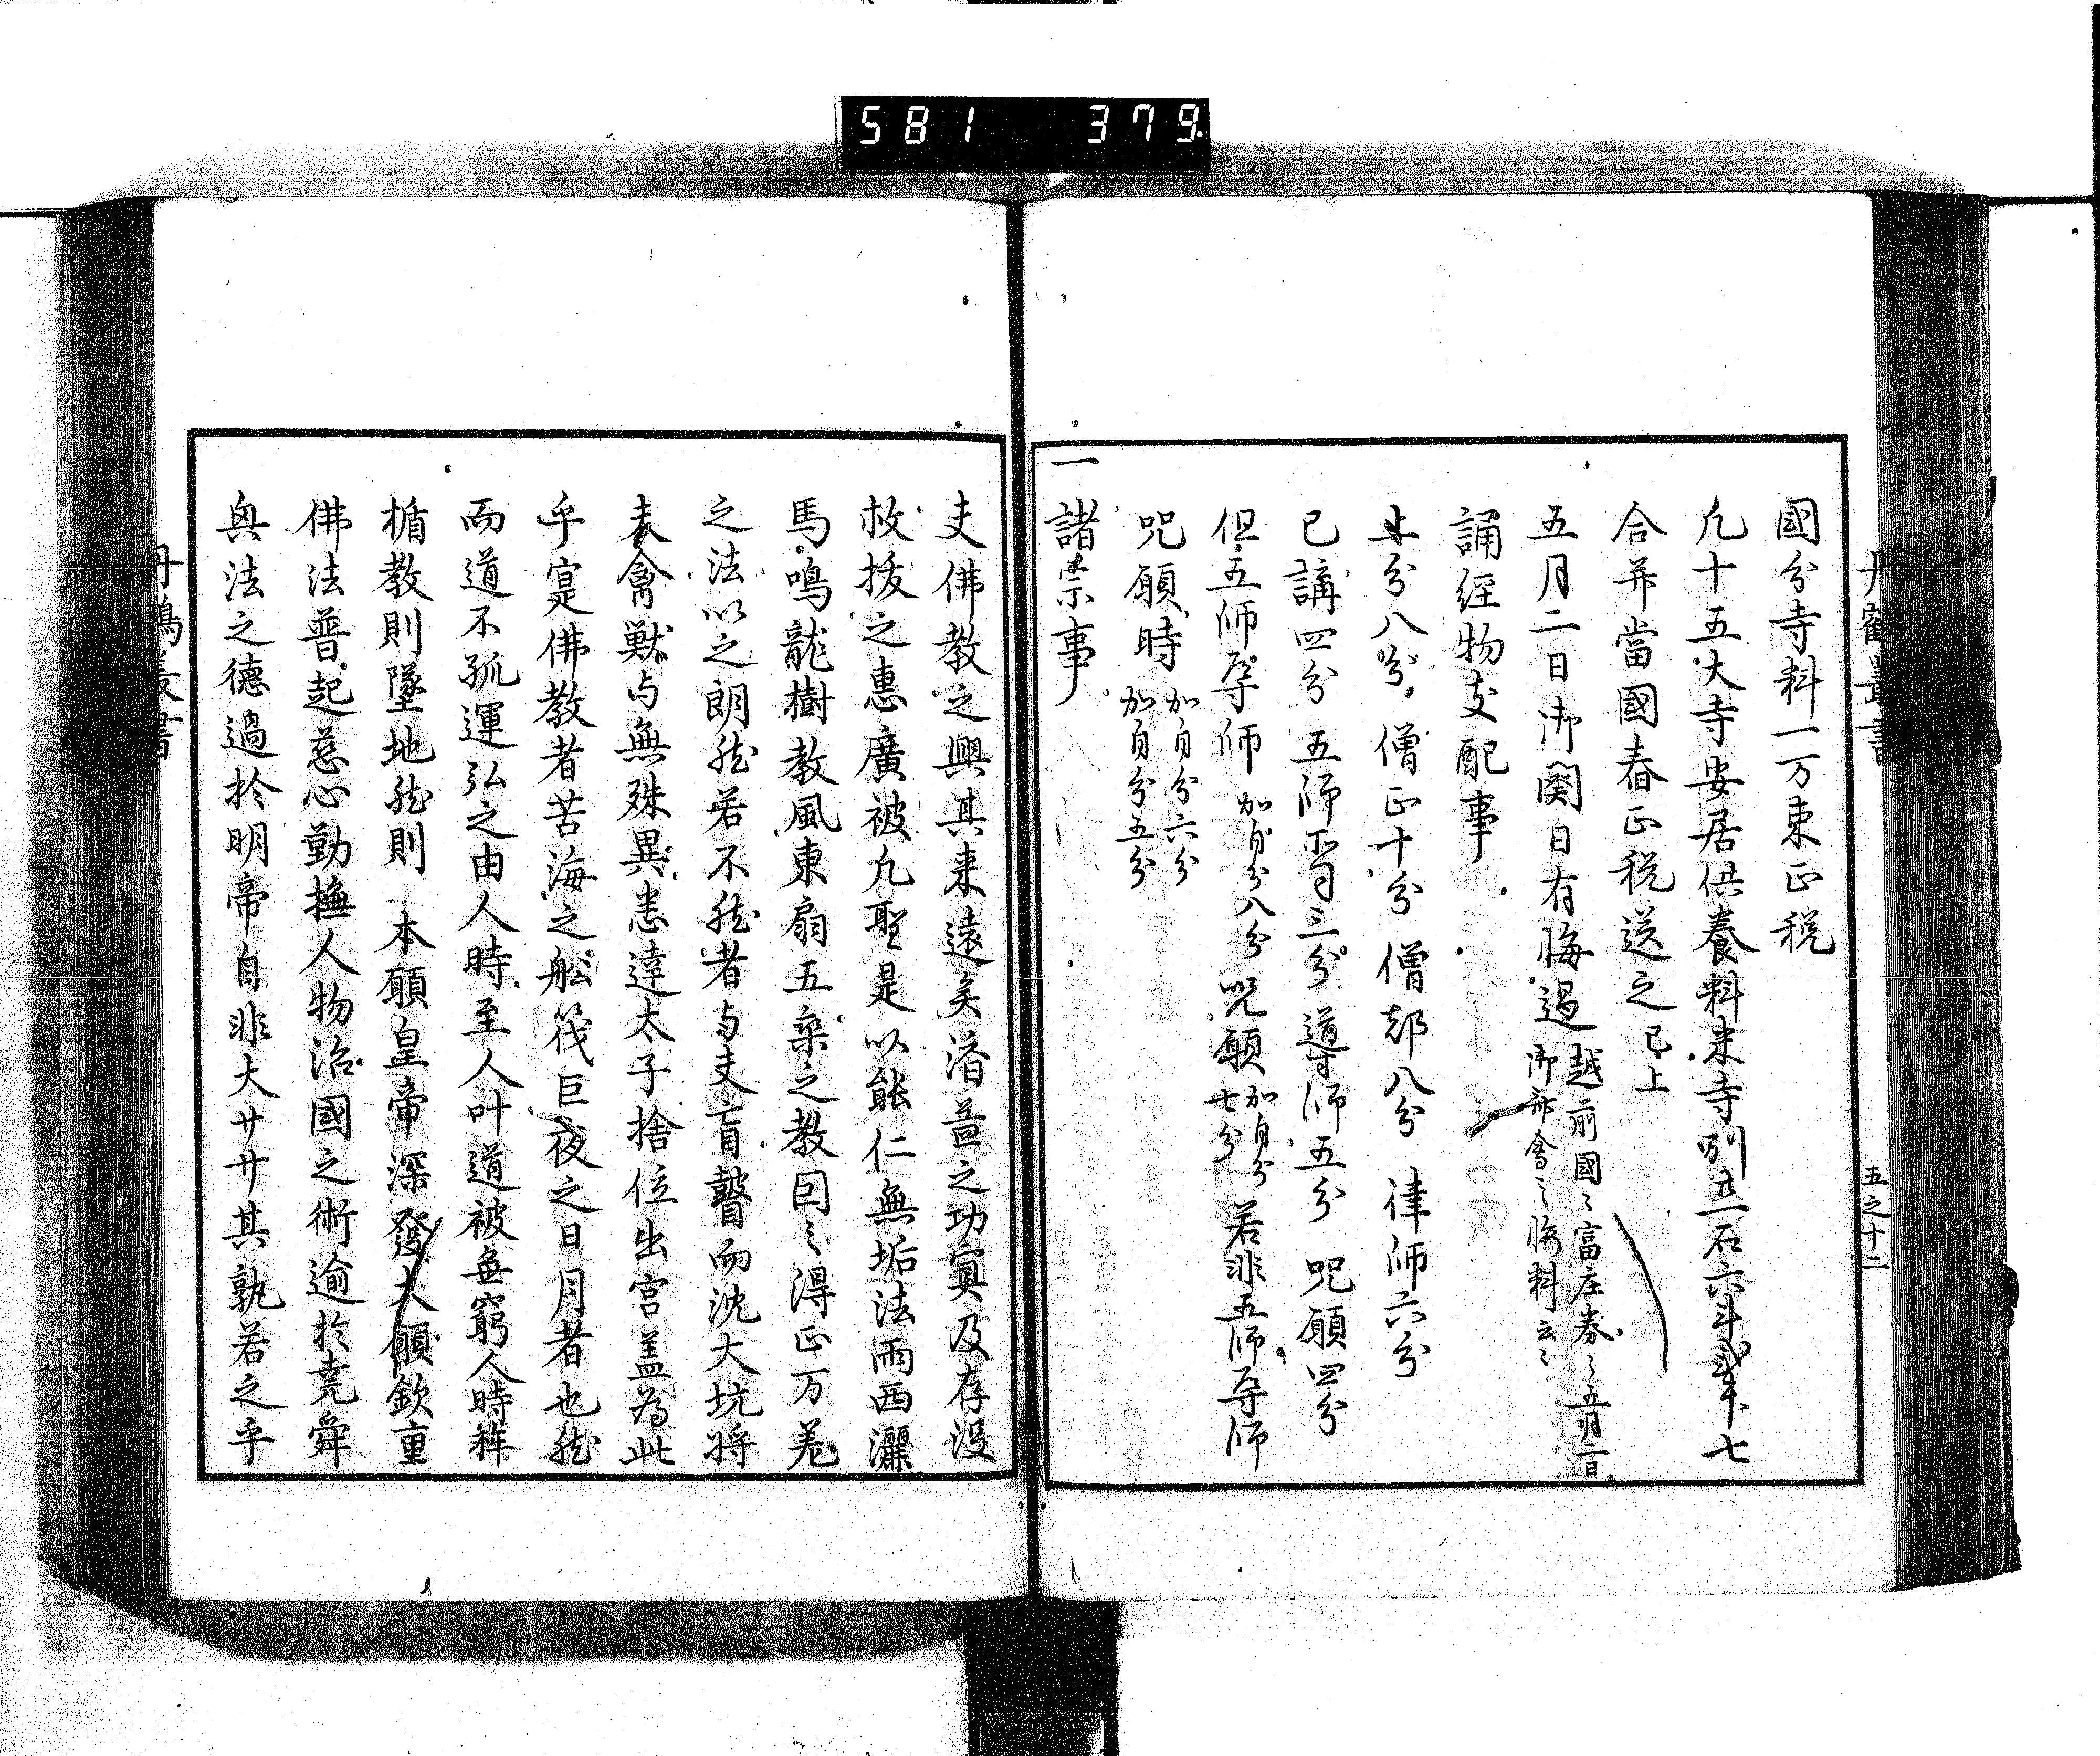 581 379
丹鶴叢書
五之十二
國分寺料一万束正税
凡十五大寺安居供養料米寺別五一石六斗弐升七
合并當國舂正税送之已上
五月二日御闋日有悔過
越前國〻富庄券〻五月二日
御齋會〻料云〻
誦経物支配事
上分八分 僧正十分 僧都八分 律師六分
已講四分 五師不習三分 導師五分 咒願四分
但五師導師加自分八分咒願加自分七分若非五師導師
咒願時加自分六分
加自分五分
一諸宗事
夫佛教之興其来遠矣済益之功冥及存没
救抜之惠廣被凡聖是以能仁無垢法雨西灑
馬鳴龍樹教風東扇五乗之教囙〻得正万羗
之法以之朗然若不然者与夫盲瞽而沈大坑将
夫禽獣与無殊異悉達太子捨位出宮盖為此
乎寔佛教者苦海之舩筏巨夜之日月者也然
而道不孤運弘之由人時至人叶道被無窮人時粋
楯教則墜地然則 本願皇帝深發大願欽重
佛法普起慈心勤撫人物治國之術逾於堯舜
與法之德過於明帝自非大廾廾其孰若之乎
丹鶴叢書